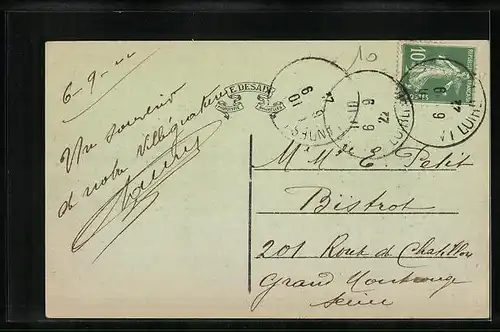 6-9-22
Un souvenir
de notre Villégiature
10
10
E DESAIX
6
22
LOIRE
M. Mme E. Petit
Bistrot
201 Route de Chatillon
Grand Montrouge
Seine